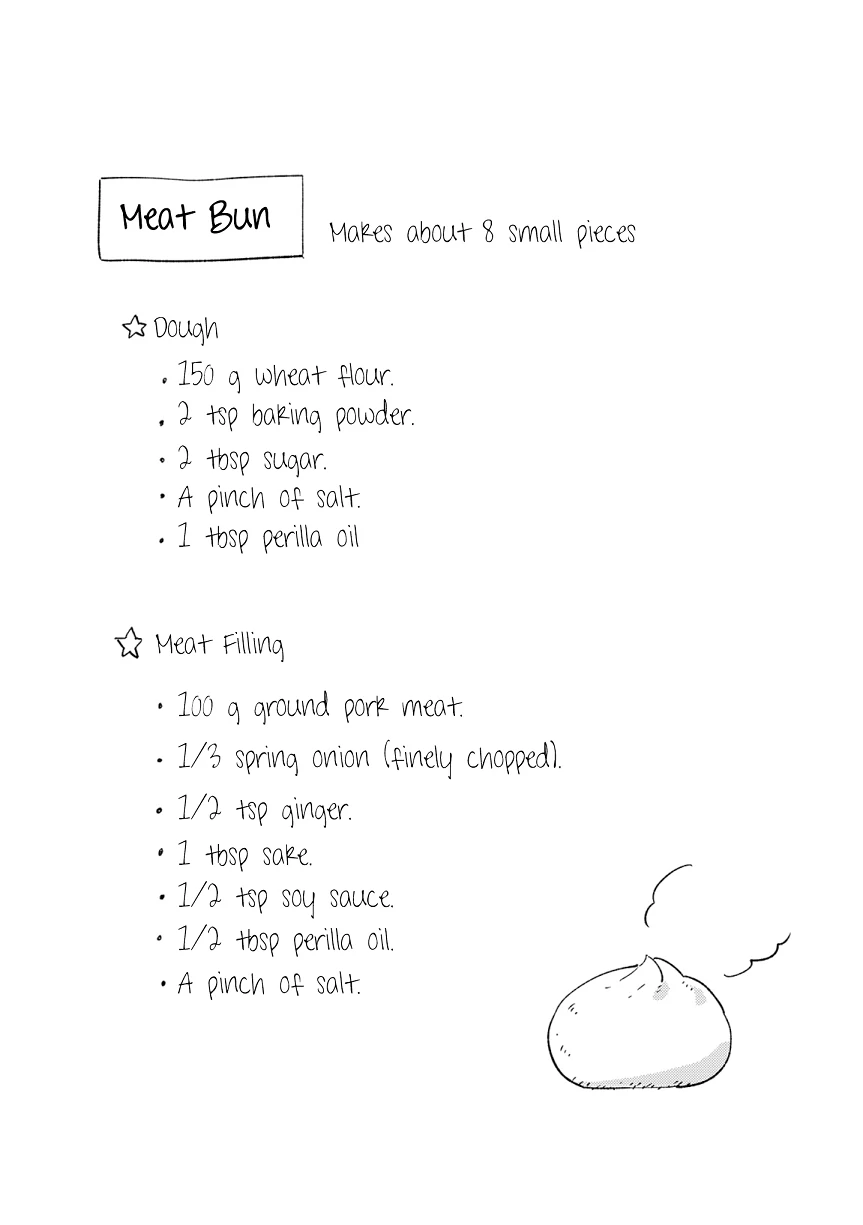 Meat Bun
Makes about 8 small pieces
☆ Dough
• 150 g wheat flour.
• 2 tsp baking powder.
• 2 tbsp sugar.
• A pinch of salt.
• 1 tbsp perilla oil
☆ Meat Filling
• 100 g ground pork meat.
• 1/3 spring onion (finely chopped).
• 1/2 tsp ginger.
• 1 tbsp sake.
• 1/2 tsp soy sauce.
• 1/2 tbsp perilla oil.
• A pinch of salt.